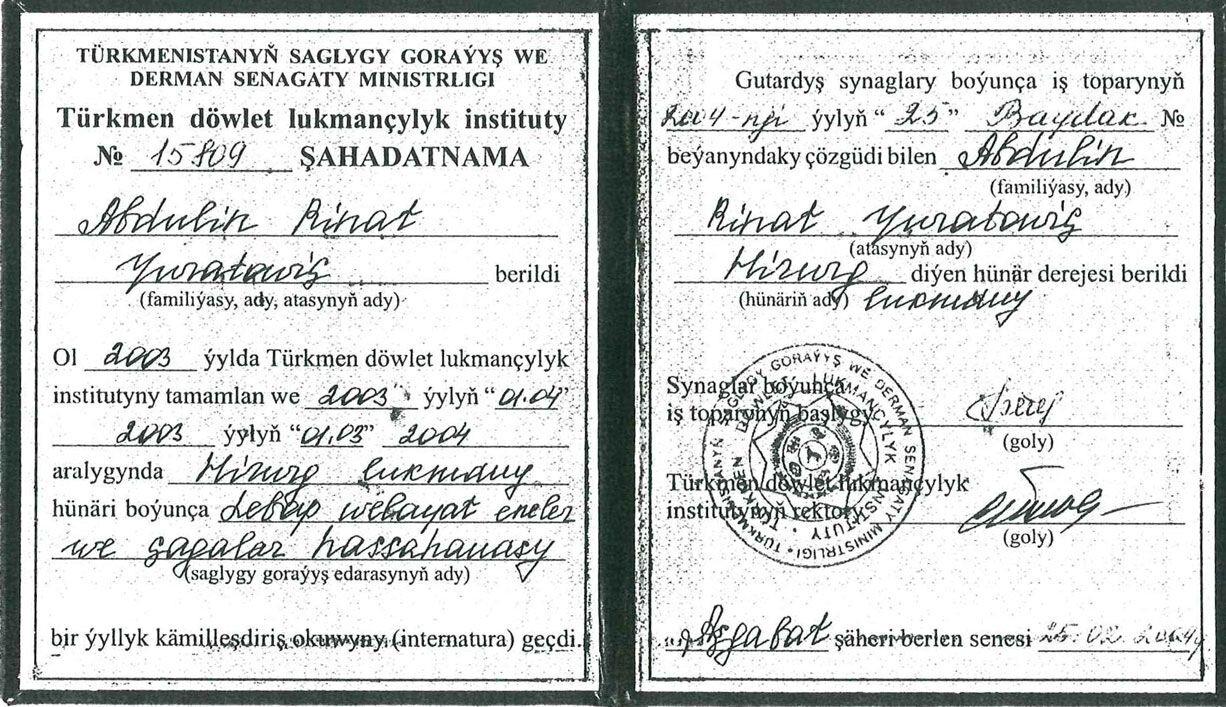 TÜRKMENISTANYŇ SAGLYGY GORAÝYŞ WE
DERMAN SENAGATY MINISTRLIGI
Türkmen döwlet lukmançylyk instituty
№ 15809 ŞAHADATNAMA
Abdulin Rinat
Yuratowiç berildi
(familiýasy, ady, atasynyň ady)
Ol 2003 ýylda Türkmen döwlet lukmançylyk
institutyny tamamlan we 2003 ýylyň “01.04”
2003 ýylyň “01.03” 2004
aralygynda Hirurg lukmany
hünäri boýunça Lebap welaýat eneler
we çagalar hassahanasy
(saglygy goraýyş edarasynyň ady)
bir ýyllyk kämilleşdiriş okuwyny (internatura) geçdi.
Gutardyş synaglary boýunça iş toparynyň
2004-nji ýylyň “25” Baydak №
beýanyndaky çözgüdi bilen Abdulin
(familiýasy, ady)
Rinat Yuratowiç
(atasynyň ady)
Hirurg diýen hünär derejesi berildi
(hünäriň ady) lukmany
Synaglar boýunça
iş toparynyň başlygy
(goly)
Türkmen döwlet lukmançylyk
institutynyň rektory
(goly)
TÜRKMENISTANYŇ SAGLYGY GORAÝYŞ WE DERMAN SENAGATY MINISTRLIGI
TÜRKMEN DÖWLET LUKMANÇYLYK INSTITUTY
Aşgabat şäheri berlen senesi 25.02.2004ý